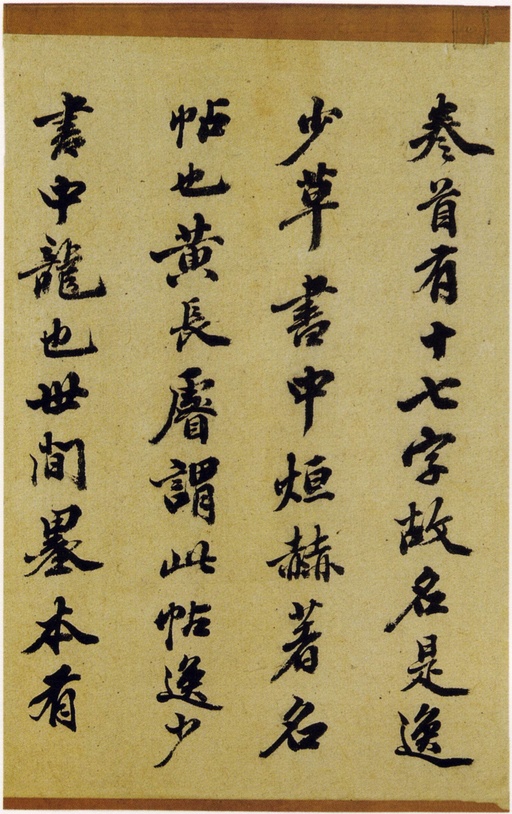 卷首有十七字故名是逸
少草書中烜赫著名
帖也黃長睿謂此帖逸少
書中龍也世間墨本有